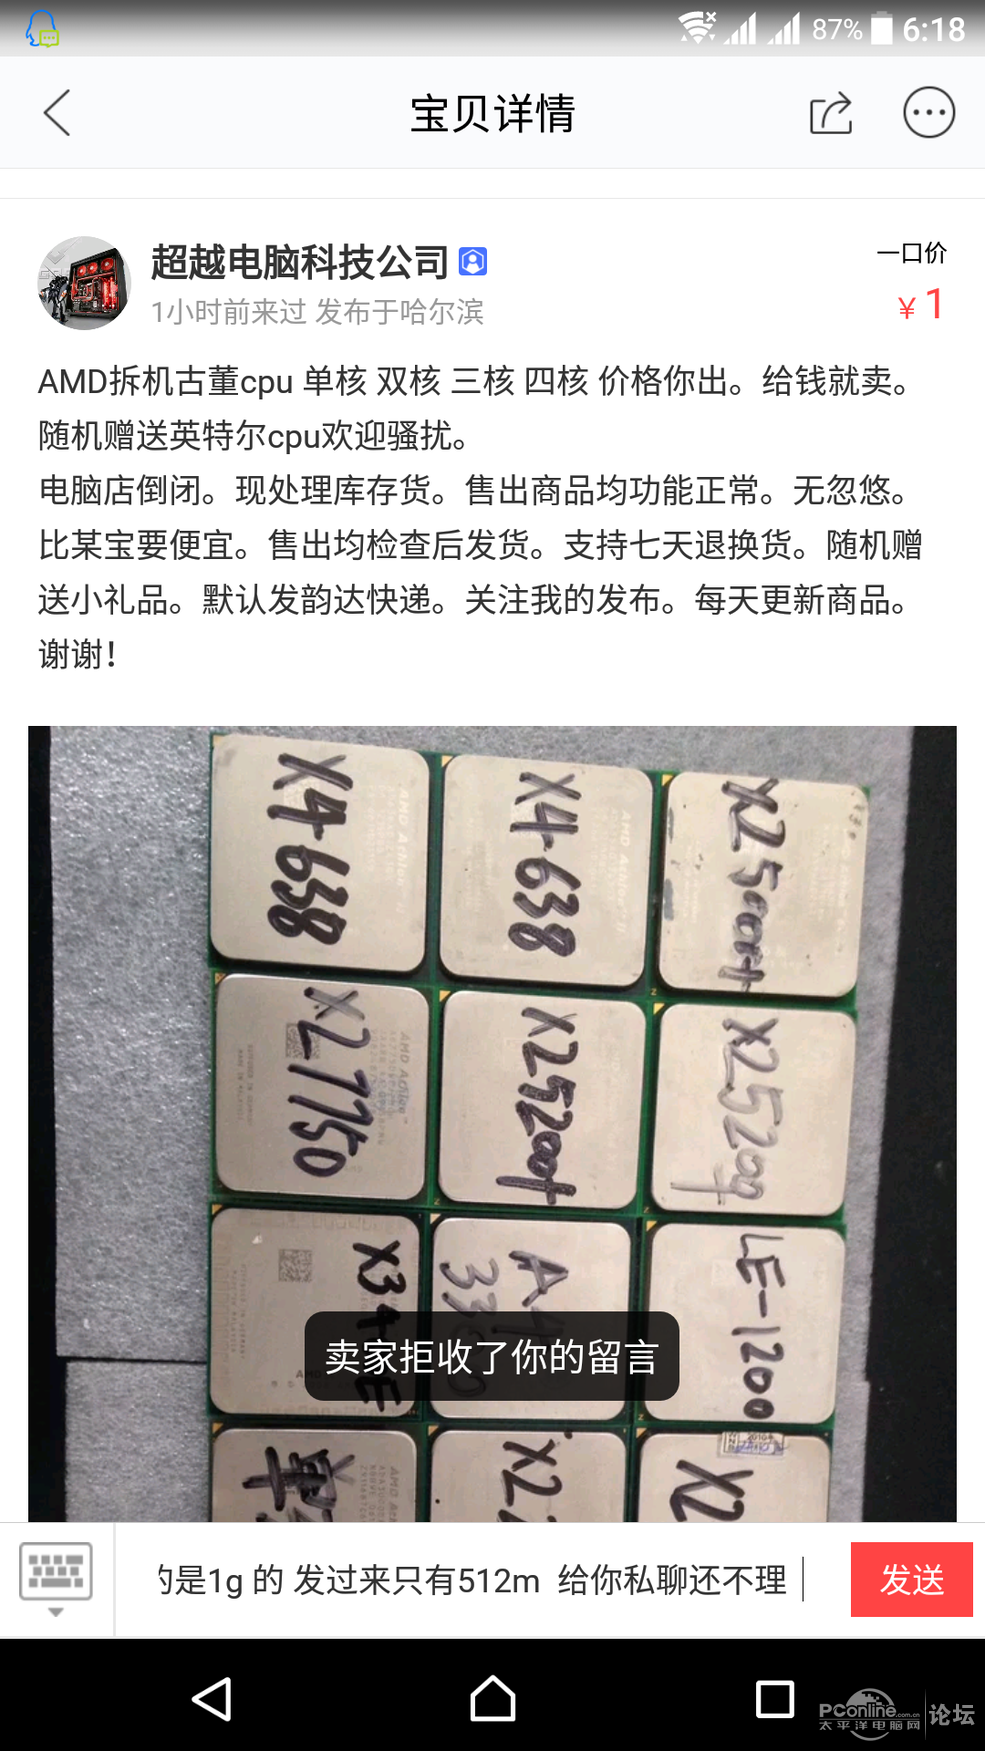 87% 6:18
宝贝详情
超越电脑科技公司
一口价
1小时前来过 发布于哈尔滨
￥1
AMD拆机古董cpu 单核 双核 三核 四核 价格你出。给钱就卖。
随机赠送英特尔cpu欢迎骚扰。
电脑店倒闭。现处理库存货。售出商品均功能正常。无忽悠。
比某宝要便宜。售出均检查后发货。支持七天退换货。随机赠
送小礼品。默认发韵达快递。关注我的发布。每天更新商品。
谢谢！
X4 638
X4 638
X2 5000+
X2 7750
X2 5200+
X2 5200+
X3 4
E
A4
LE-1200
单
X2
X2
卖家拒收了你的留言
的是1g 的 发过来只有512m 给你私聊还不理
发送
PConline.com.cn
太平洋电脑网
论坛